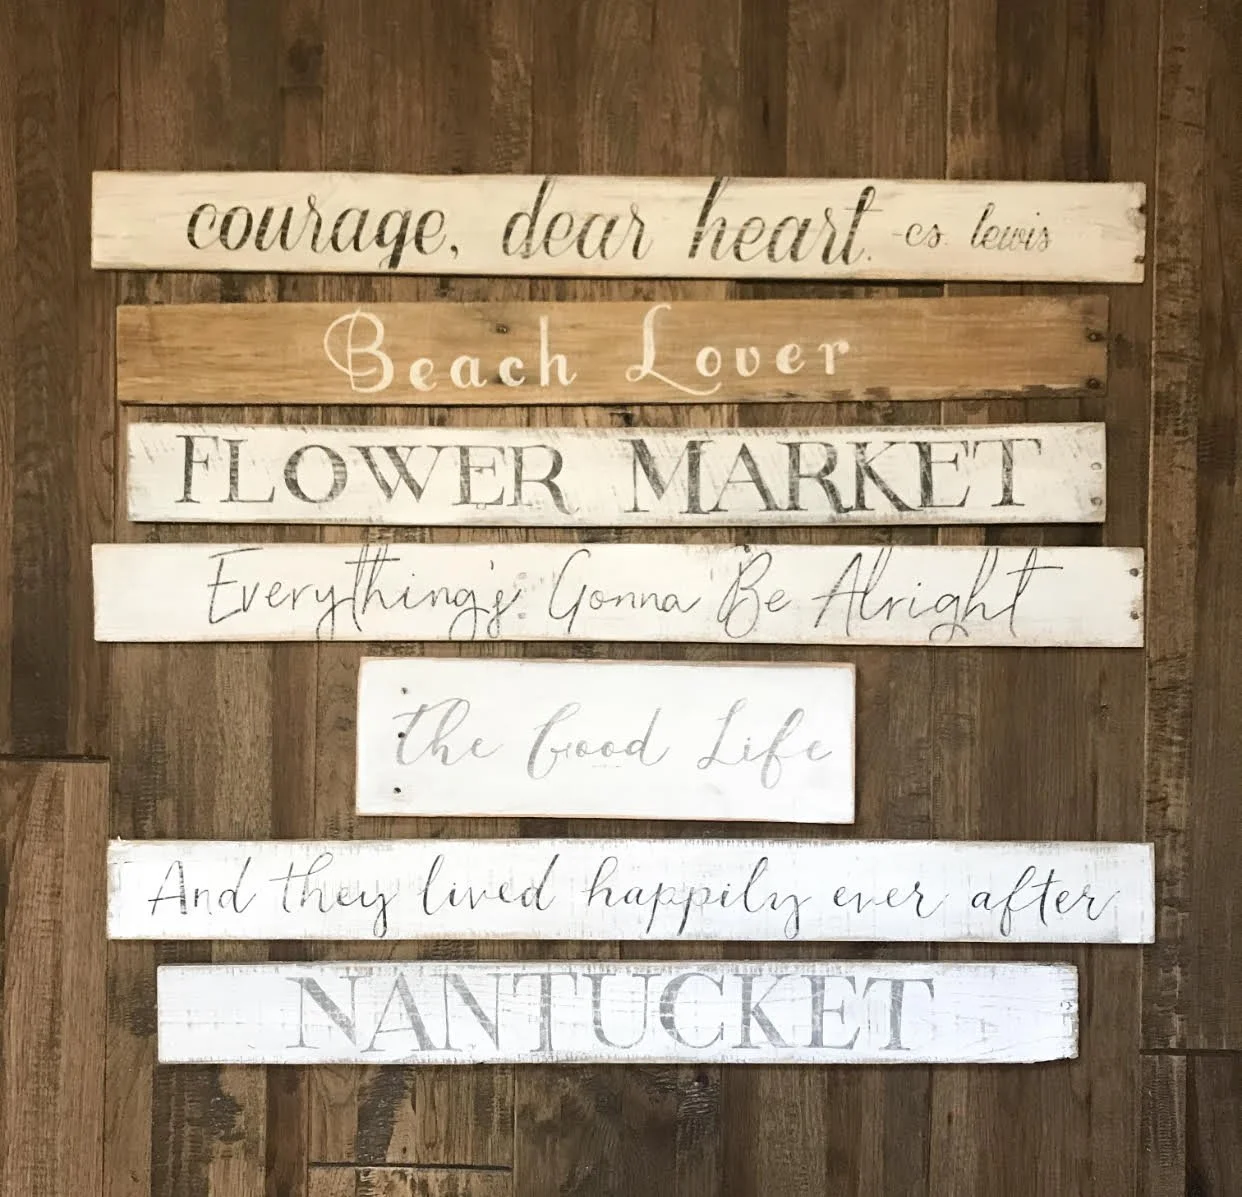 courage, dear heart. -cs. lewis
Beach Lover
FLOWER MARKET
Everything's Gonna Be Alright
the Good Life
And they lived happily ever after
NANTUCKET